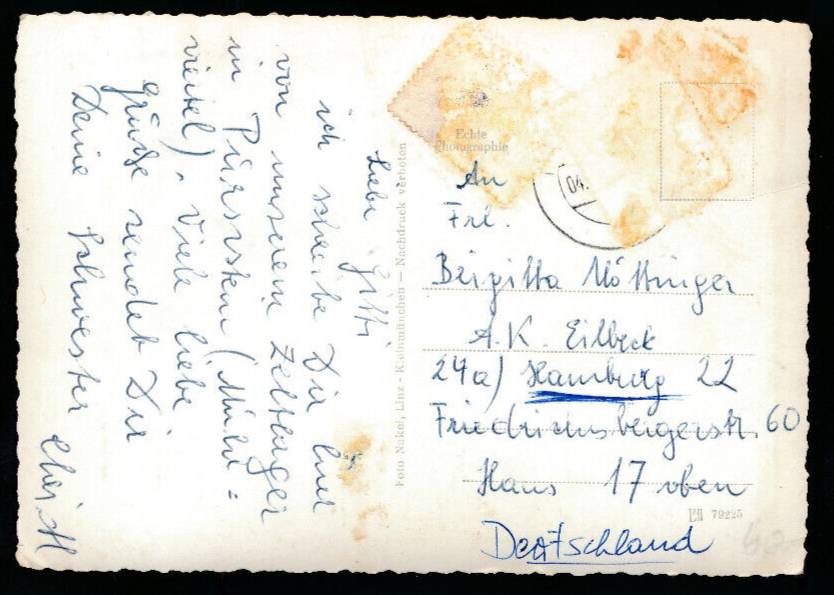 Liebe Gitti
ich schreibe Dir hier
von unserem Zeltlager
in Pürnstein (Mühl=
viertel). Viele liebe
Grüße sendet Dir
Deine Schwester
Foto Nakel, Linz - Kleinmünchen — Nachdruck verboten
Echte
Photographie
04.
An
Frl.
Brigitta Nöttinger
A.K. Eilbeck
24a) Hamburg 22
Friedrichsbergerstr. 60
Haus 17 oben
Deutschland
79225